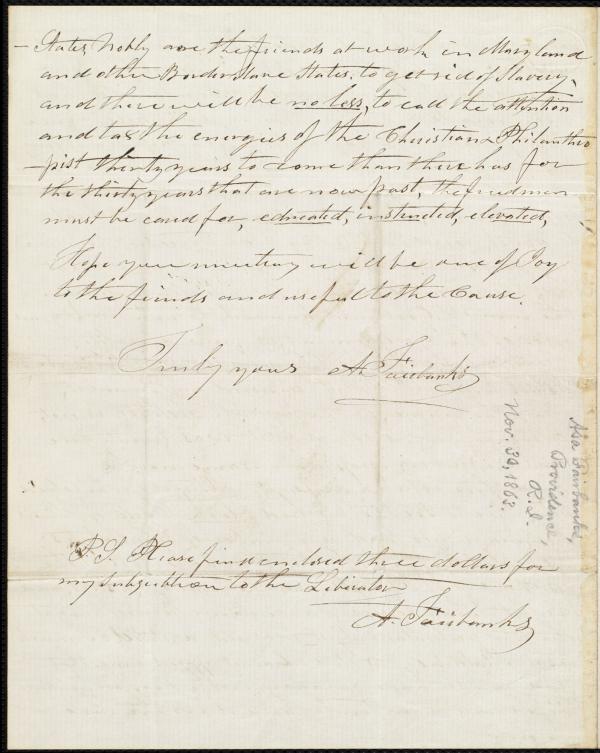 - States, Nobly are the friends at work in Maryland
and other Border Slave States, to get rid of Slavery,
and there will be no less, to call the attention
and tax the energies of the Christian & Philanthro
-pist thirty years to come than there has for
the thirty years that are now past, the freedmen
must be cared for, educated, instructed, elevated,
Hope your meeting will be one of Joy
to the friends and useful to the Cause.
Truly yours A. Fairbanks
P.S. Please find enclosed three dollars for
my subscription to the Liberator
A. Fairbanks
Asa Fairbanks,
Providence,
R.I.
Nov. 30, 1863.